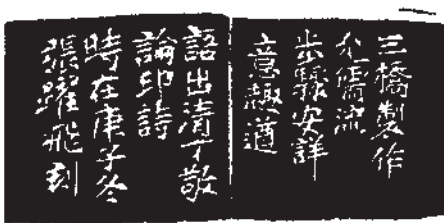 三橋製作
允儒流
步驟安詳
意趣遒
語出清丁敬
論印詩
時在庚子冬
張躍飛刻